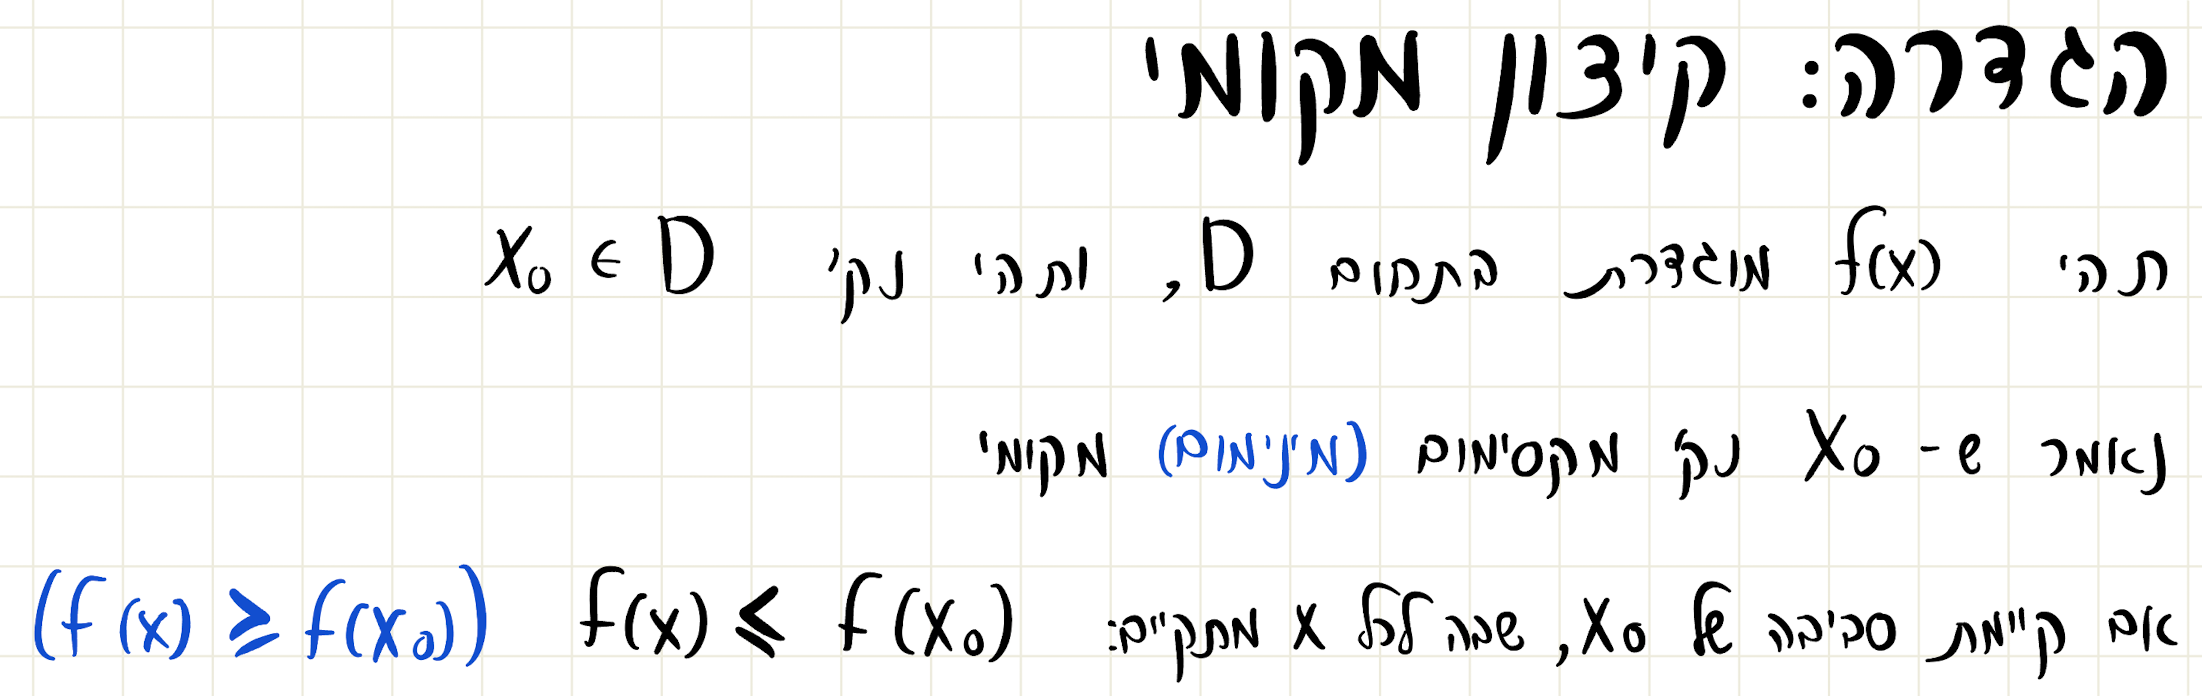 הגדרה: קיצון מקומי
תהי f(x) מוגדרת בתחום D, ותהי נק' x₀ ∈ D
נאמר ש- x₀ נק' מקסימום (מינימום) מקומי
אם קיימת סביבה של x₀, שבה לכל x מתקיים: f(x) ⩽ f(x₀) (f(x) ⩾ f(x₀))